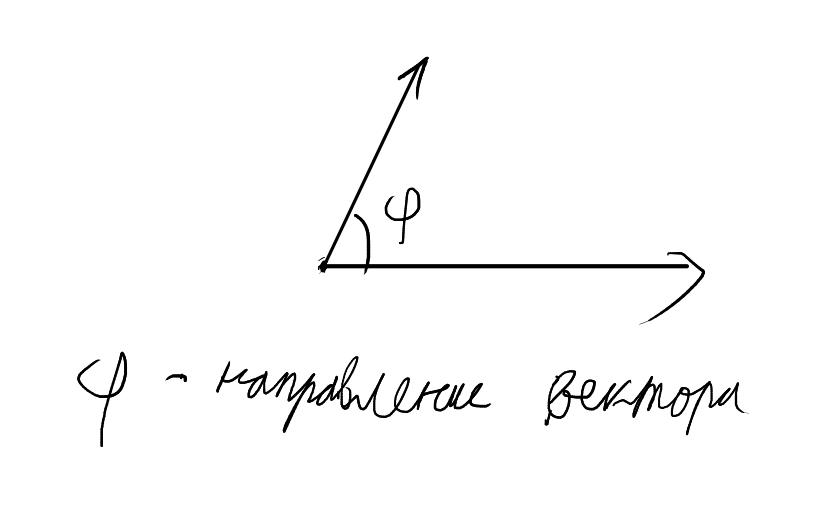 φ
φ - направление вектора